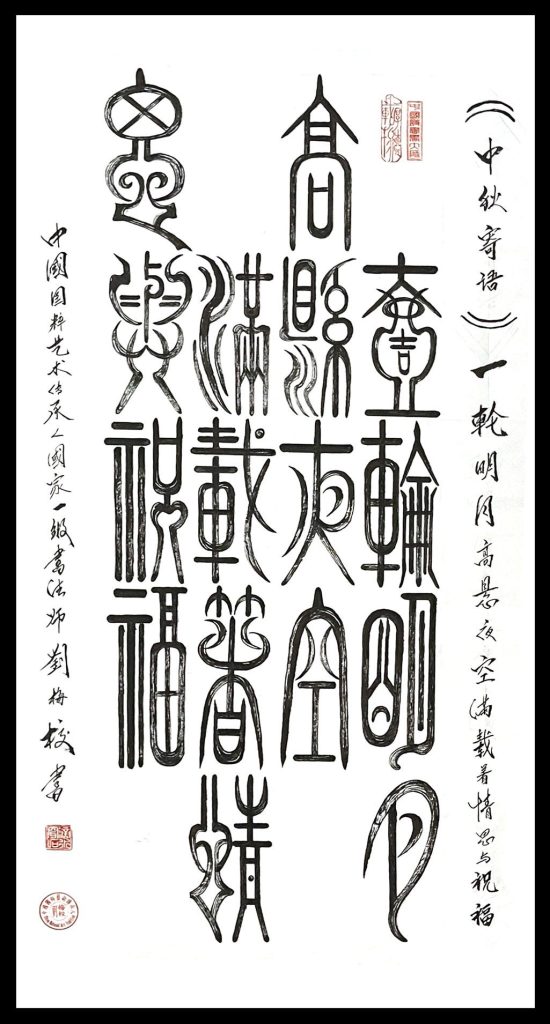 《中秋寄语》一轮明月高悬夜空满载着情思与祝福
壹輪明月
高縣夜空
滿載著情
思與祝福
中國国粹艺术传承人國家一级書法师劉梅校書